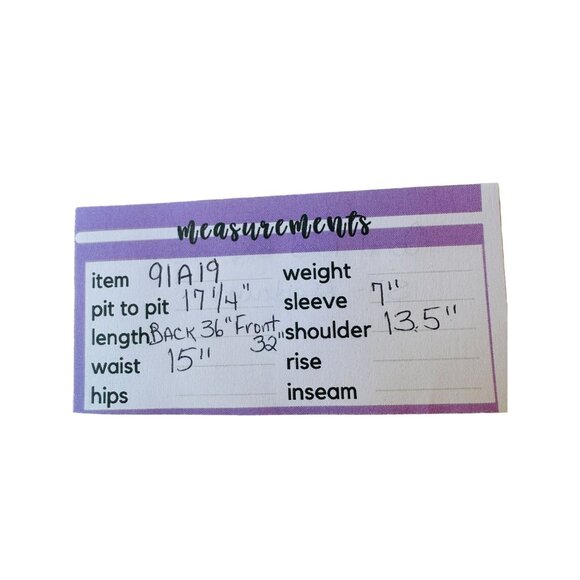 measurements
item 91A19
pit to pit 17 1/4"
length Back 36" Front 32"
waist 15"
hips
weight
sleeve 7"
shoulder 13.5"
rise
inseam